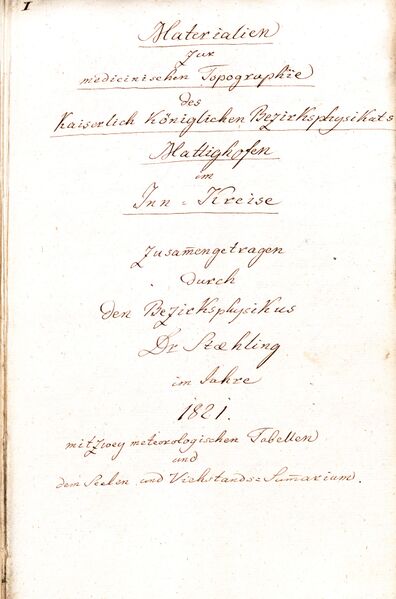 1
Materialien
zur
medicinischen Topographie
des
Kaiserlich Königlichen Bezirksphysikats
Mattighofen
im
Inn = Kreise
Zusam̅engetragen
durch
den Bezirksphysikus
Dr Stæhling
im Jahre
1821.
mit zwey meteorologischen Tabellen
und
dem Seelen und Viehstands = Sum̅arium.